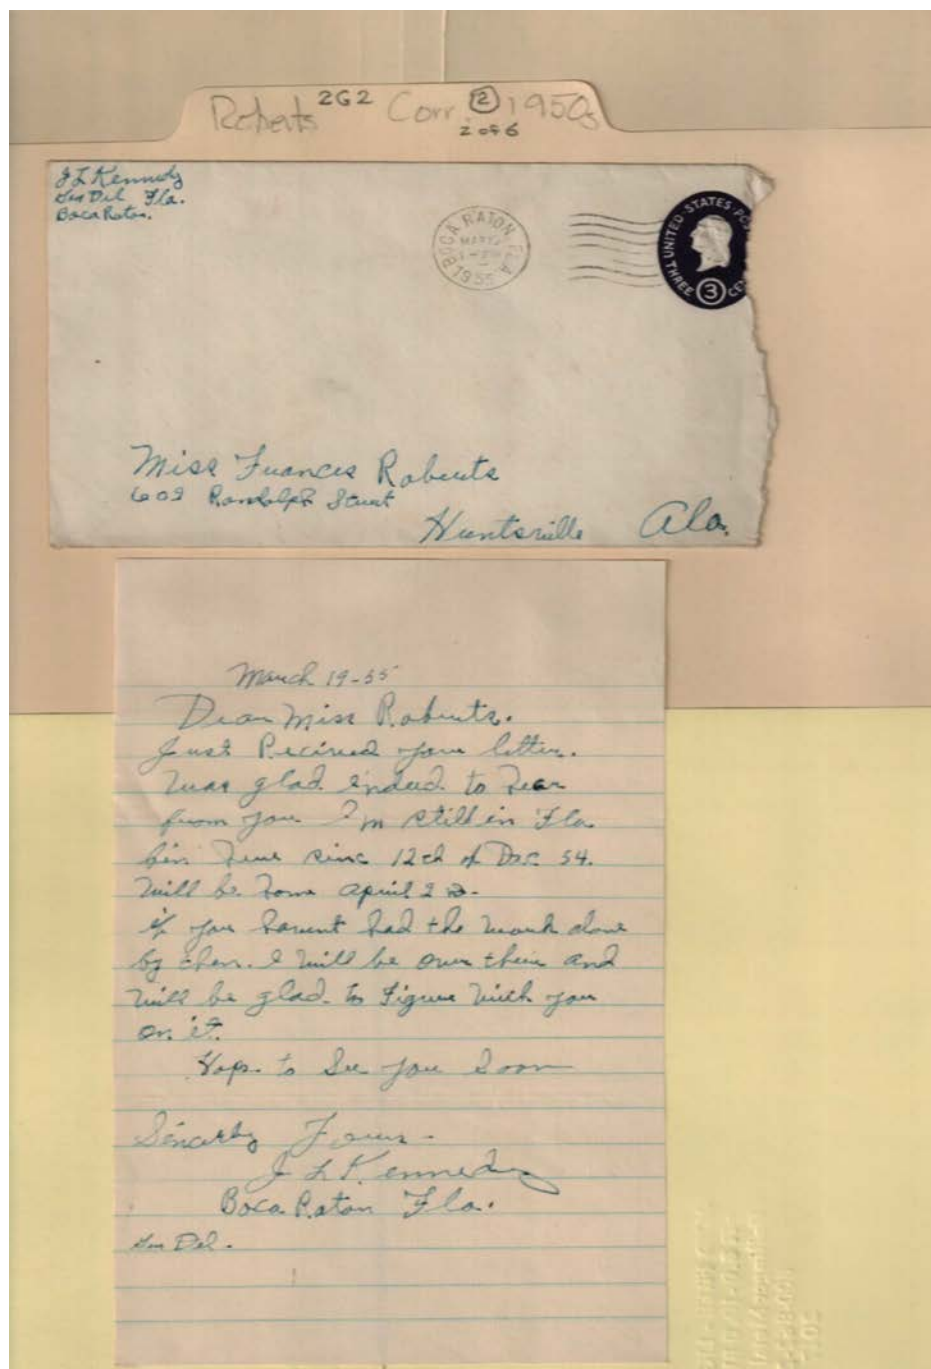 Roberts 2G2 Corr. 2 1950s
2 of 6
J L Kennedy
Gen Del Fla.
Boca Raton.
BOCA RATON, FLA
MAR
1955
UNITED STATES
THREE 3 CEN
Miss Frances Roberts
602 Randolph Street
Huntsville Ala.
March 19-55
Dear Miss Roberts.
Just Recived your letter.
Was glad indeed to hear
from you I'm still in Fla
bin here sinc 12th of Dec 54.
Will be home April 2
if you havent had the work done
by then. I will be over their and
will be glad to Figure with you
on it.
Hope to See you Soon
Sincerly Yours -
J L Kennedy
Boca Raton Fla.
Gen Del.